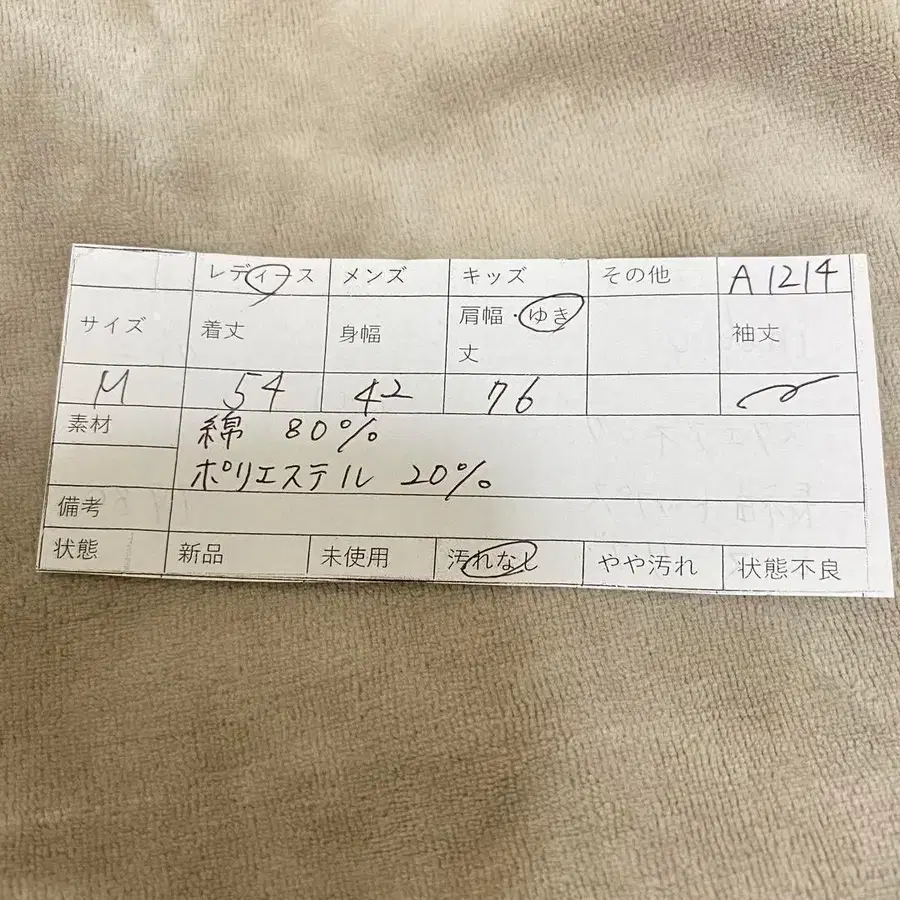 レディース メンズ キッズ その他 A1214
サイズ 着丈 身幅 肩幅・ゆき丈 袖丈
M 54 42 76
素材 綿 80%
ポリエステル 20%
備考
状態 新品 未使用 汚れなし やや汚れ 状態不良